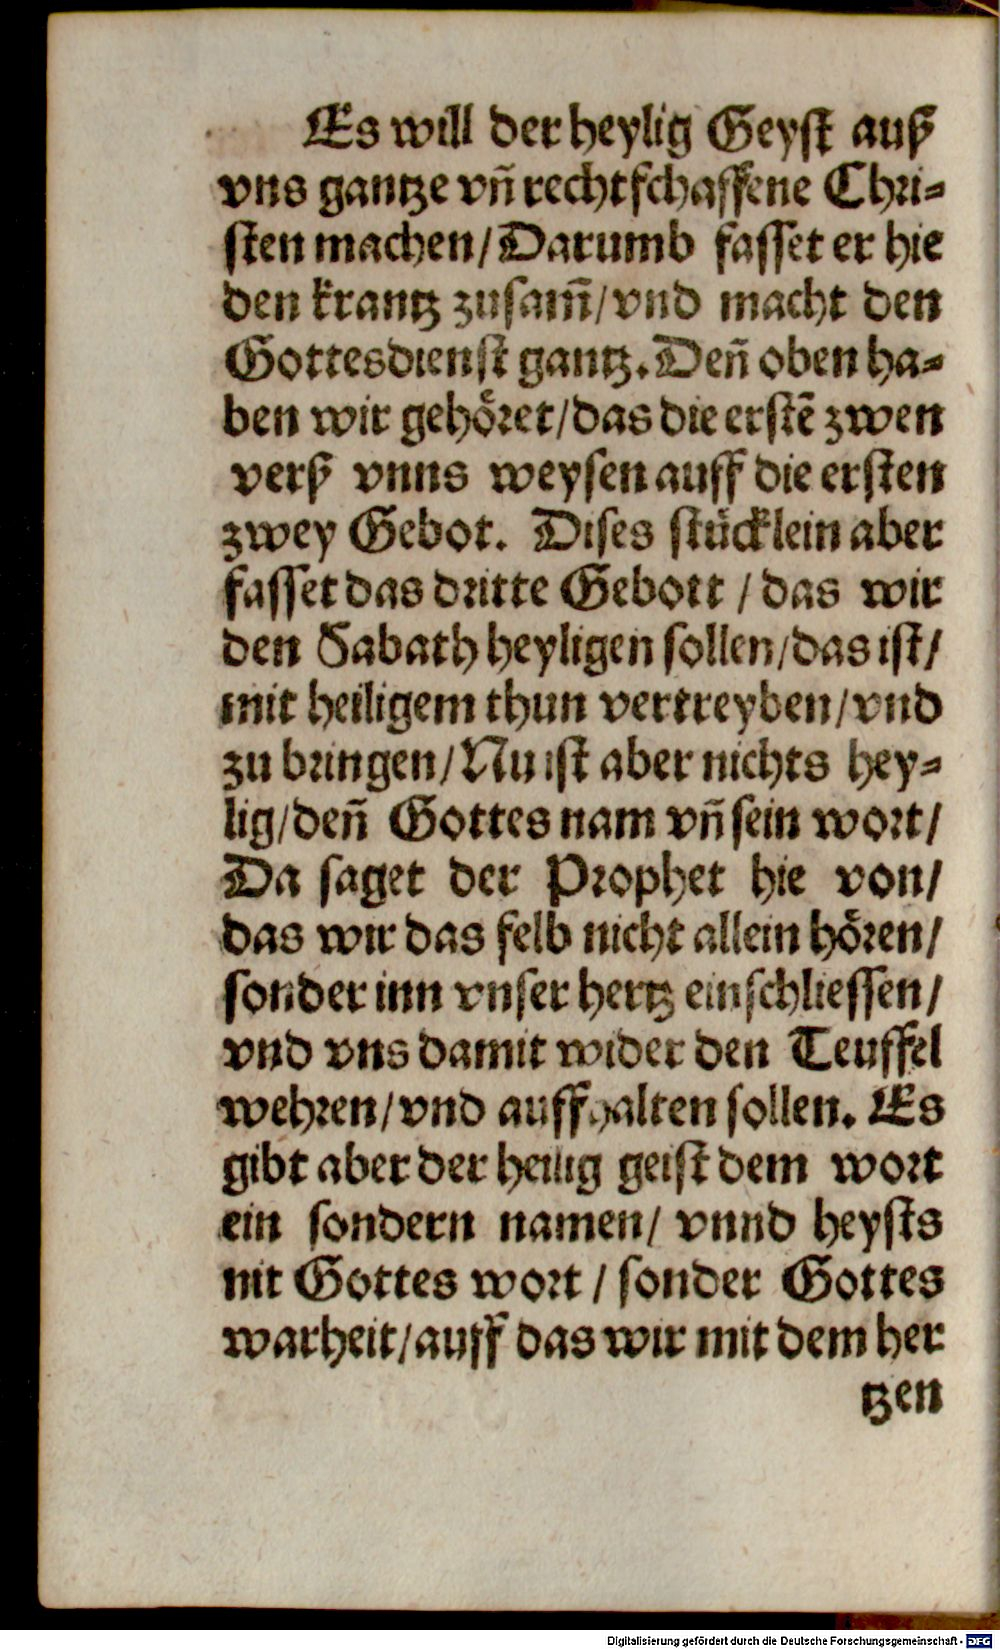 Es will der heylig Geyſt auß
vns gantze vñ rechtſchaffene Chri-
ſten machen/ Darumb faſſet er hie
den krantz zuſam̃/ vnd macht den
Gottesdienſt gantz. Deñ oben ha-
ben wir gehöret/ das die erſtẽ zwen
verß vnns weyſen auff die erſten
zwey Gebot. Diſes ſtücklein aber
faſſet das dritte Gebott / das wir
den Sabath heyligen ſollen/ das iſt/
mit heiligem thun vertreyben/ vnd
zu bringen/ Nu iſt aber nichts hey-
lig/ deñ Gottes nam vñ ſein wort/
Da ſaget der Prophet hie von/
das wir das ſelb nicht allein hören/
ſonder inn vnſer hertz einſchlieſſen/
vnd vns damit wider den Teuffel
wehren/ vnd auffhalten ſollen. Es
gibt aber der heilig geiſt dem wort
ein ſondern namen/ vnnd heyſts
nit Gottes wort / ſonder Gottes
warheit/ auff das wir mit dem her
tzen
Digitalisierung gefördert durch die Deutsche Forschungsgemeinschaft - DFG